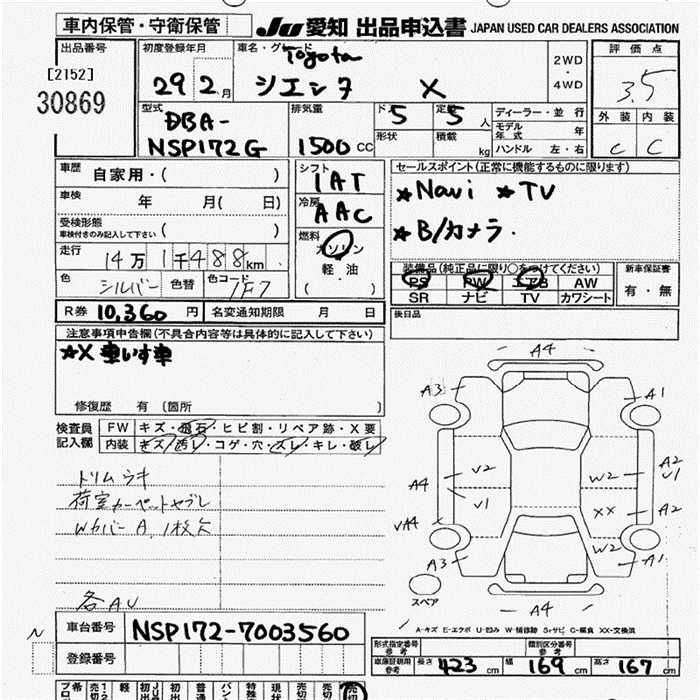 車内保管・守衛保管
JU 愛知 出品申込書 JAPAN USED CAR DEALERS ASSOCIATION
出品番号
[2152]
30869
初度登録年月
29 2月
車名・グレード
Toyota
シエンタ X
2WD
・
4WD
評価点
3.5
外装 内装
C C
型式
DBA-
NSP172G
排気量
1500 CC
ドア 5
定員 5 人
形状
積載 kg
ディーラー・並行
モデル年式 年
ハンドル 左・右
車歴 自家用・( )
車検 年 月( 日)
受検形態
車検付きのみ記入して下さい ( )
走行 14万1千488km
色 シルバー 色替 色コード 1F7
シフト
IAT
冷房
AAC
燃料
ガソリン
軽油
( )
セールスポイント(正常に機能するものに限ります)
★Navi ★TV
★B/カメラ.
装備品(純正品に限り○をつけてください)
PS PW エアB AW
SR ナビ TV カワシート
新車保証書
有・無
R券 10,360 円 名変通知期限 月 日
後日品
注意事項申告欄(不具合内容等は具体的に記入して下さい)
★X 車いす車
修復歴 有 (箇所 )
検査員記入欄
FW キズ・飛石・ヒビ割・リペア跡・X要
内装 キズ・汚レ・コゲ・穴・スレ・キレ・破レ
トリムウキ
荷室カーペットヤブレ
Wカバー A, 1枚欠
各AU
A4
A3 A1
A4 V2 W2 A2
V1
V1 XX A2
VA4 W2
A3 A1
スペア
A4
A-キズ E-エクボ U-凹み W-補修跡 S-サビ C-腐食 XX-交換済
N
車台番号 NSP172-7003560
登録番号
形式指定番号
参考
類別区分番号
参考
車庫証明用
参考
長さ 423 cm 幅 169 cm 高さ 167 cm